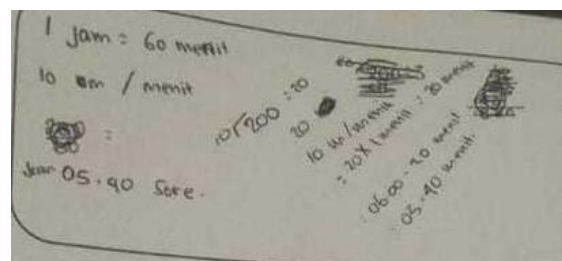 1 jam = 60 menit
10 m / menit
=
Jam 05.40 Sore.
10√200 = 20
20
10 m/menit
= 20 x 1 menit = 20 menit
: 06.00 - 20 menit
: 05.40 menit.